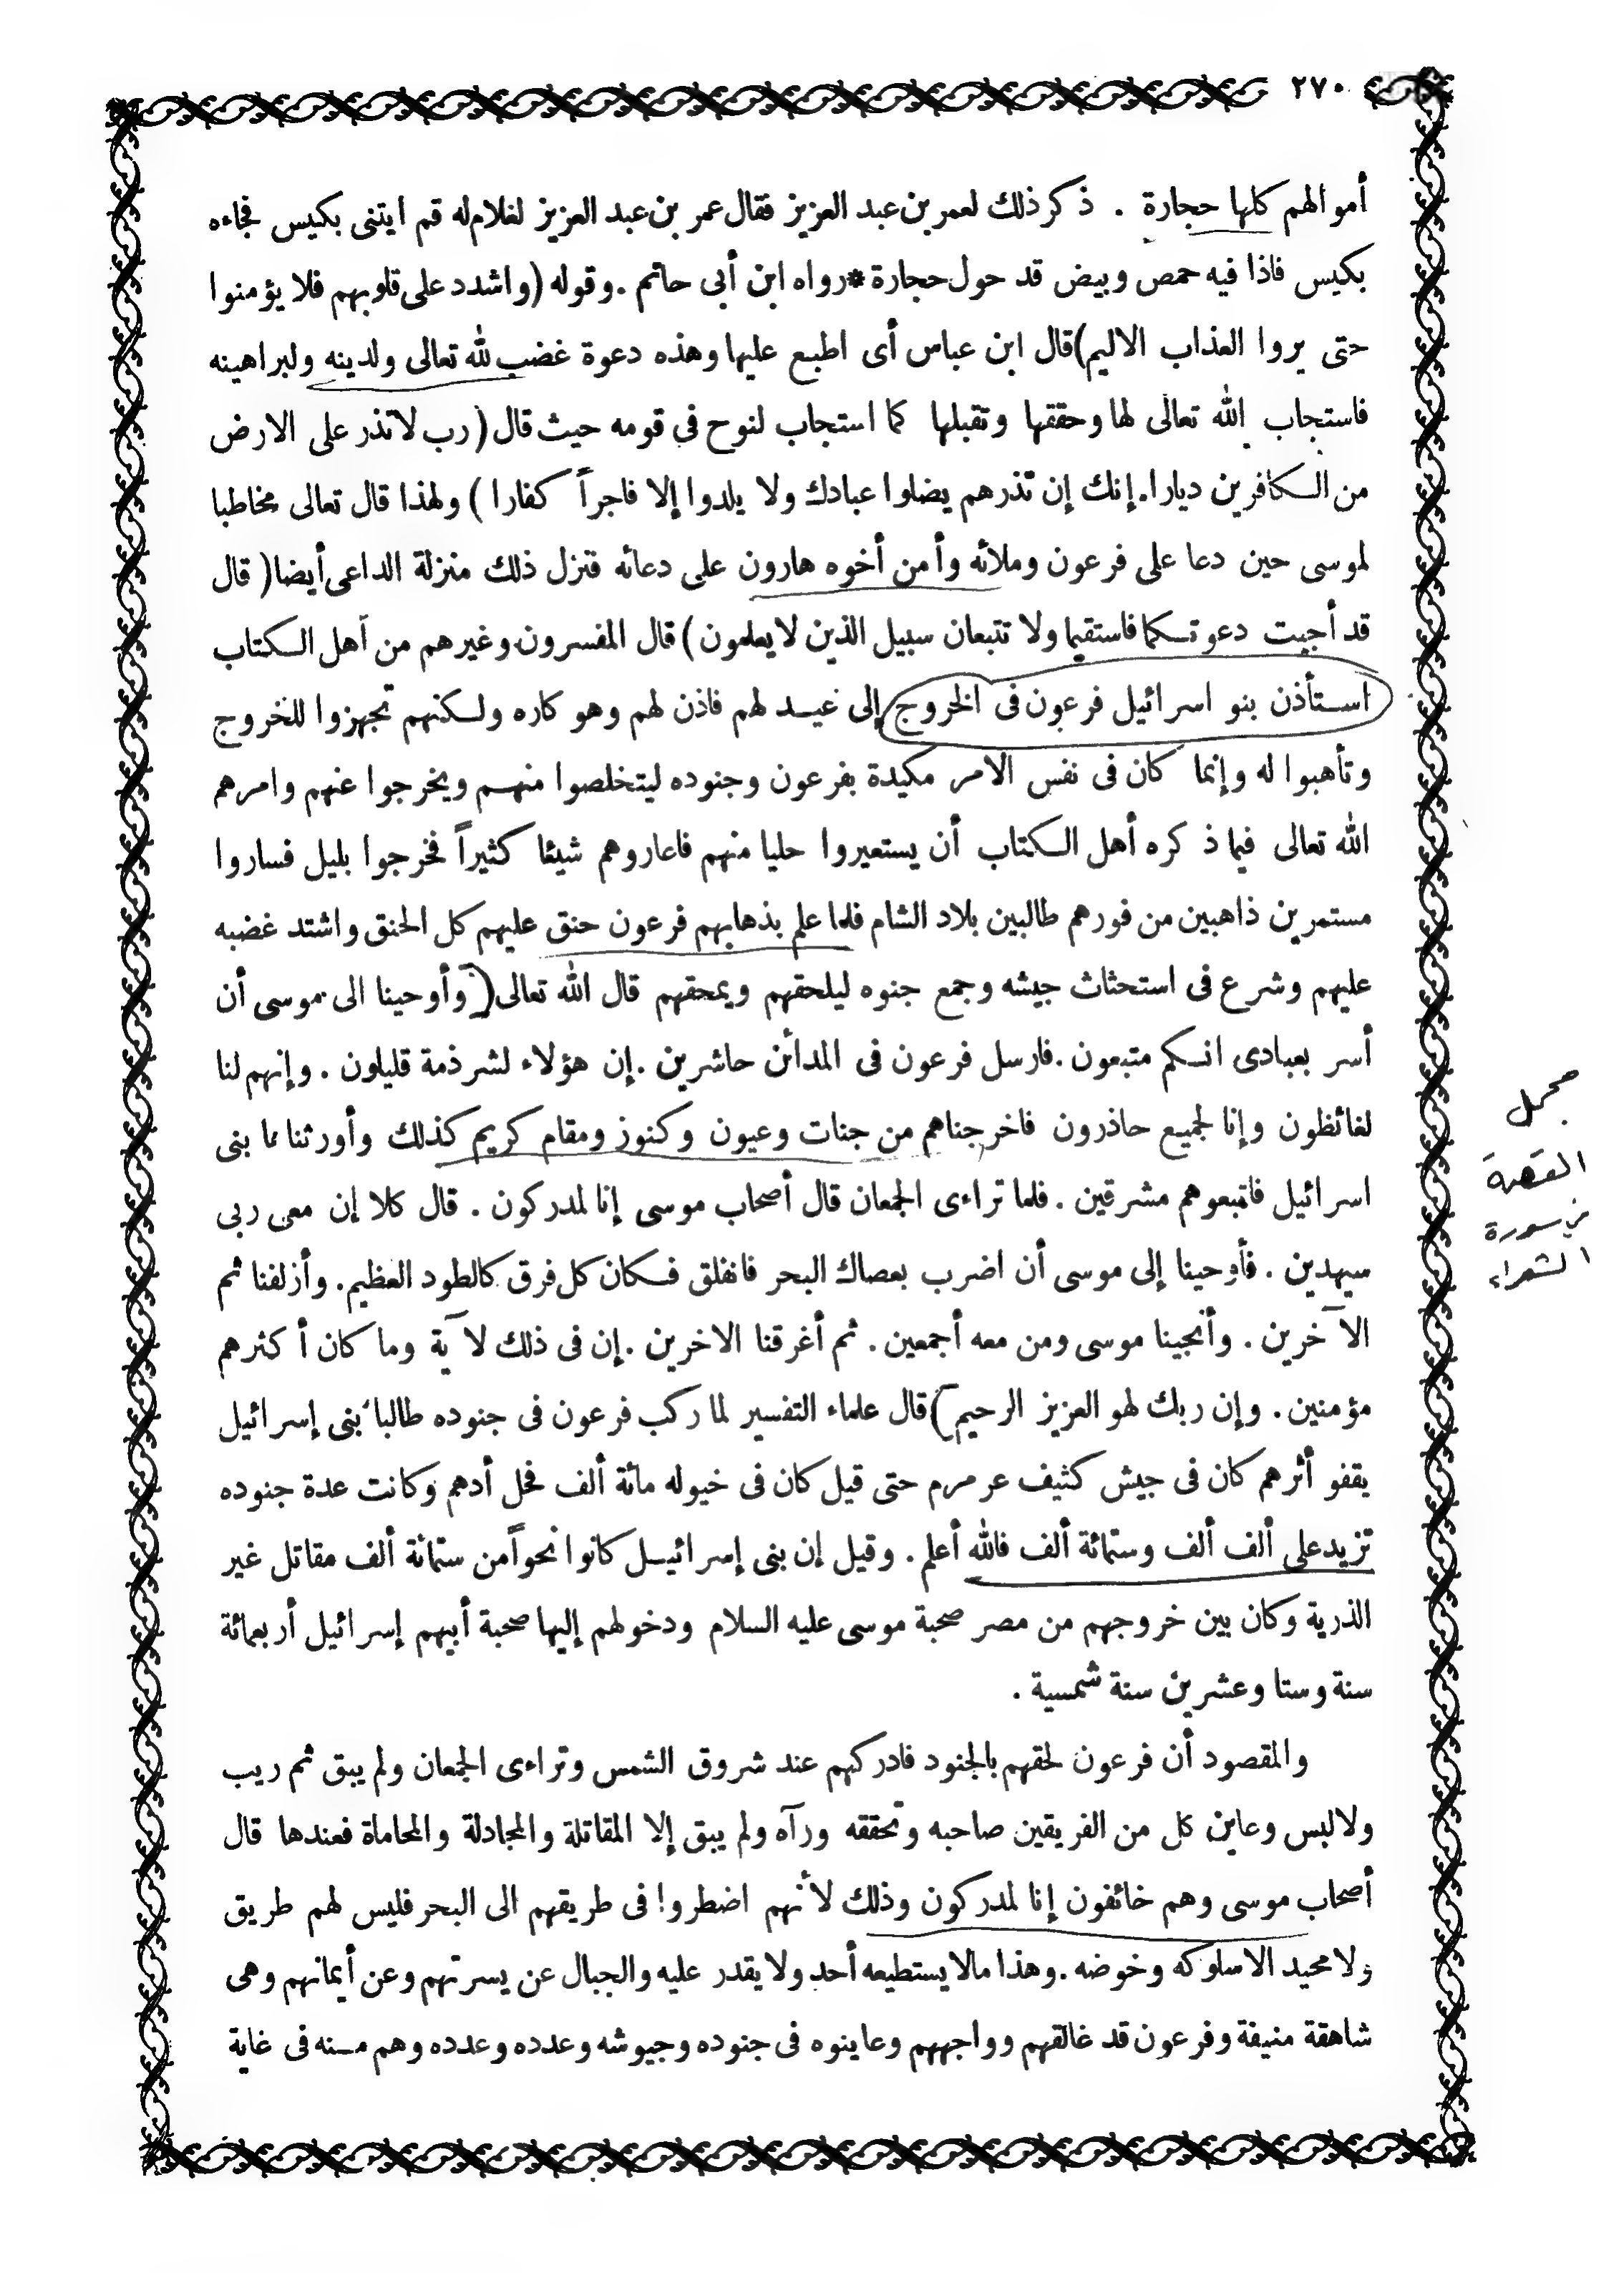 ٢٧٠
أموالهم كلها حجارة . ذكر ذلك لعمر بن عبد العزيز فقال عمر بن عبد العزيز لغلام له قم ايتنى بكيس فجاءه
بكيس فاذا فيه حمص وبيض قد حول حجارة * رواه ابن أبى حاتم . وقوله (واشدد على قلوبهم فلا يؤمنوا
حتى يروا العذاب الاليم) قال ابن عباس أى اطبع عليها وهذه دعوة غضب لله تعالى ولدينه ولبراهينه
فاستجاب الله تعالى لها وحققها وتقبلها كما استجاب لنوح فى قومه حيث قال (رب لا تذر على الارض
من الكافرين ديارا. إنك إن تذرهم يضلوا عبادك ولا يلدوا إلا فاجراً كفارا) ولهذا قال تعالى مخاطبا
لموسى حين دعا على فرعون وملائه وأمن أخوه هارون على دعائه فنزل ذلك منزلة الداعى أيضا (قال
قد أجيبت دعوتكما فاستقيما ولا تتبعان سبيل الذين لا يعلمون) قال المفسرون وغيرهم من أهل الكتاب
استأذن بنو اسرائيل فرعون فى الخروج إلى عيد لهم فاذن لهم وهو كاره ولكنهم تجهزوا للخروج
وتأهبوا له وإنما كان فى نفس الامر مكيدة بفرعون وجنوده ليتخلصوا منهم ويخرجوا عنهم وامرهم
الله تعالى فيما ذكره أهل الكتاب أن يستعيروا حليا منهم فاعاروهم شيئا كثيراً فخرجوا بليل فساروا
مستمرين ذاهبين من فورهم طالبين بلاد الشام فلما علم بذهابهم فرعون حنق عليهم كل الحنق واشتد غضبه
عليهم وشرع فى استحثاث جيشه وجمع جنوه ليلحقهم ويمحقهم قال الله تعالى (وأوحينا الى موسى أن
أسر بعبادى انكم متبعون . فارسل فرعون فى المدائن حاشرين . إن هؤلاء لشرذمة قليلون . وإنهم لنا
لغائظون وإنا لجميع حاذرون فاخرجناهم من جنات وعيون وكنوز ومقام كريم كذلك وأورثنا مما بنى
اسرائيل فاتبعوهم مشرقين . فلما تراءى الجمعان قال أصحاب موسى إنا لمدركون . قال كلا إن معى ربى
سيهدين . فأوحينا إلى موسى أن اضرب بعصاك البحر فانفلق فكان كل فرق كالطود العظيم. وأزلفنا ثم
الآخرين . وأنجينا موسى ومن معه أجمعين . ثم أغرقنا الاخرين . إن فى ذلك لآية وما كان أكثرهم
مؤمنين . وإن ربك لهو العزيز الرحيم) قال علماء التفسير لما ركب فرعون فى جنوده طالبا بنى إسرائيل
يقفو أثرهم كان فى جيش كثيف عرمرم حتى قيل كان فى خيوله مائة ألف فحل أدهم وكانت عدة جنوده
تزيد على ألف ألف وستمائة ألف فالله أعلم . وقيل إن بنى إسرائيل كانوا نحواً من ستمائة ألف مقاتل غير
الذرية وكان بين خروجهم من مصر صحبة موسى عليه السلام ودخولهم إليها صحبة أبيهم إسرائيل أربعمائة
سنة وستا وعشرين سنة شمسية .
والمقصود أن فرعون لحقهم بالجنود فادركهم عند شروق الشمس وتراءى الجمعان ولم يبق ثم ريب
ولا لبس وعاين كل من الفريقين صاحبه وتحققه ورآه ولم يبق إلا المقاتلة والمجادلة والمحاماة فعندها قال
أصحاب موسى وهم خائفون إنا لمدركون وذلك لأنهم اضطروا فى طريقهم الى البحر فليس لهم طريق
ولا محيد الا سلوكه وخوضه . وهذا ما لا يستطيعه أحد ولا يقدر عليه والجبال عن يسرتهم وعن أيمانهم وهى
شاهقة منيفة وفرعون قد غالقهم وواجههم وعاينوه فى جنوده وجيوشه وعدده وعدده وهم منه فى غاية
مجمل
القصة
من سورة
الشعراء